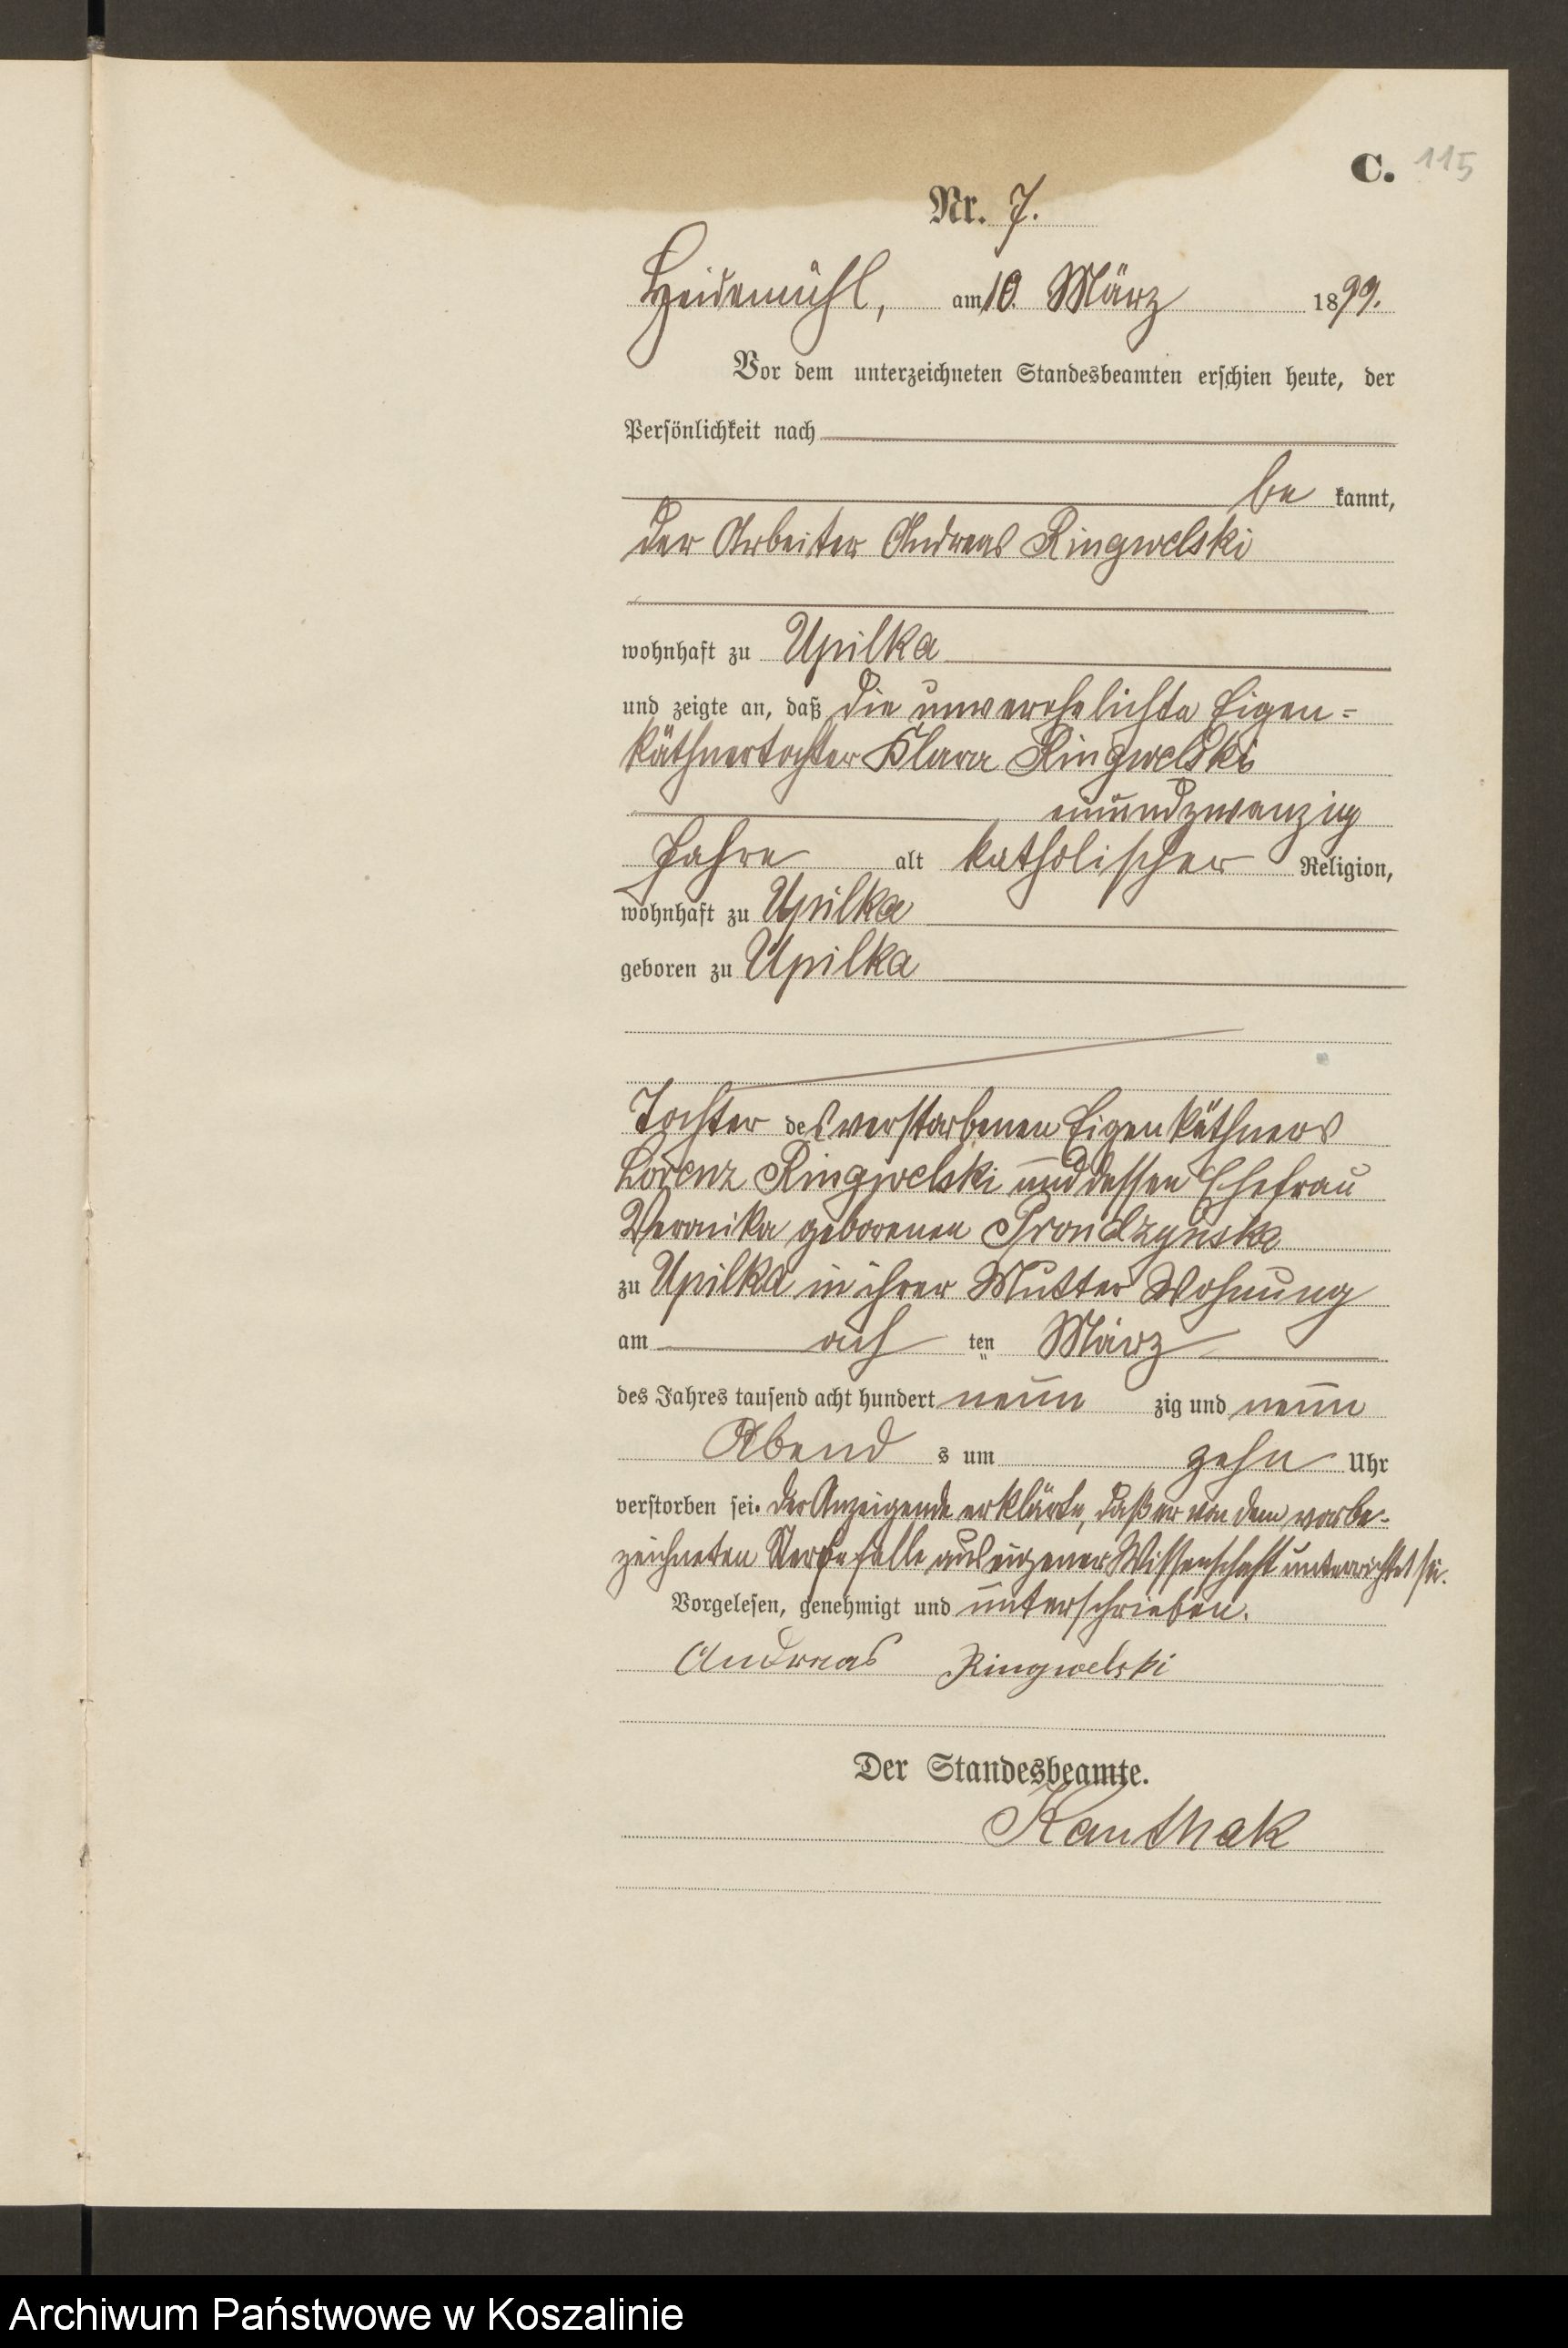 C. 115
Nr. 7.
Heidemühl, am 10. März 1899.
Vor dem unterzeichneten Standesbeamten erschien heute, der
Persönlichkeit nach
be kannt,
der Arbeiter Andreas Ringwelski
wohnhaft zu Upilka
und zeigte an, daß die unverehelichte Eigen=
käthnertochter Klara Ringwelski
einundzwanzig
Jahre alt katholischer Religion,
wohnhaft zu Upilka
geboren zu Upilka
Tochter des verstorbenen Eigenkäthners
Lorenz Ringwelski und dessen Ehefrau
Veronika geborenen Prondzynska
zu Upilka in ihrer Mutter Wohnung
am ach ten März
des Jahres tausend acht hundert neun zig und neun
Abend s um zehn Uhr
verstorben sei. Der Anzeigende erklärte, daß er von dem vorbe-
zeichneten Sterbefalle aus eigener Wissenschaft unterrichtet sei.
Vorgelesen, genehmigt und unterschrieben.
Andreas Ringwelski
Der Standesbeamte.
Kanthak
Archiwum Państwowe w Koszalinie